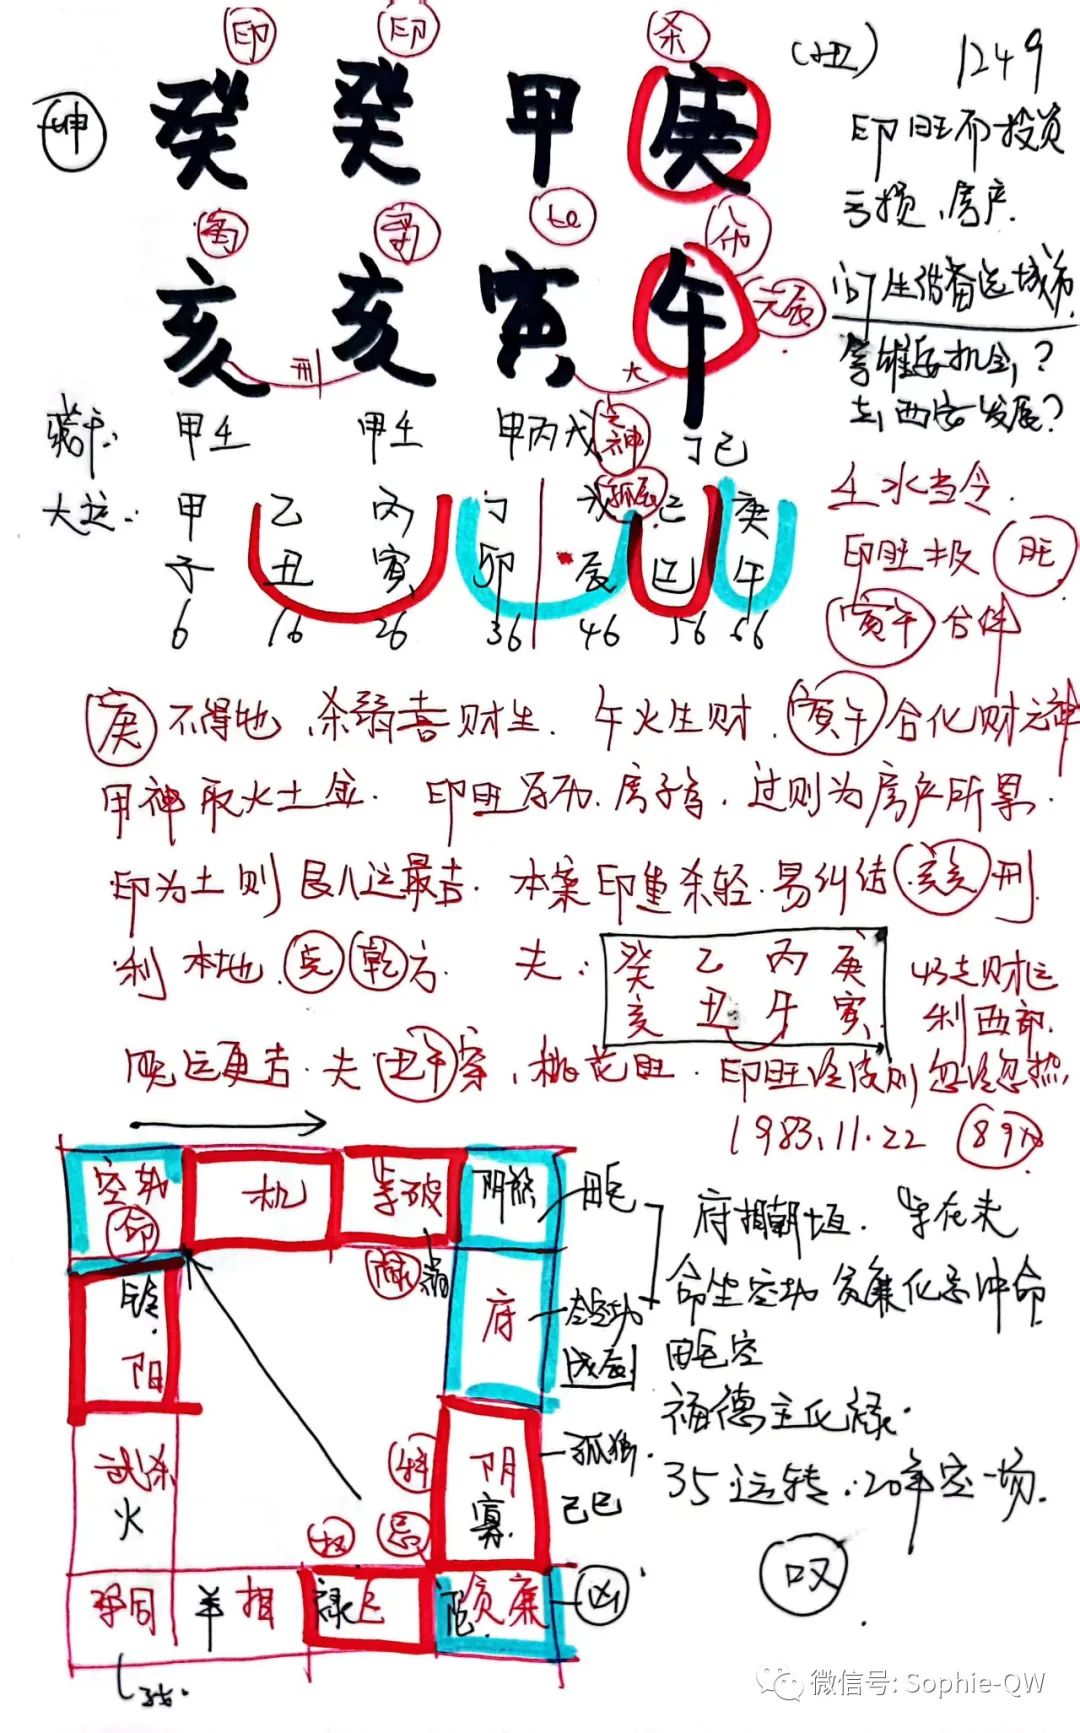 印 印 杀
(丑) 1249
坤 癸 癸 甲 庚
印旺不投资
亏损、房产.
亥 亥 寅 午
元辰
刑
藏干: 甲壬 甲壬 甲丙戊 丁己
大运: 甲 乙 丙 丁 戊 己 庚
子 丑 寅 卯 辰 巳 午
6 16 26 36 46 56 66
孤辰
去西安发展?
壬水当令.
印旺极 旺
寅午 合伴
庚 不得地、杀弱喜财生. 午火生财. 寅午 合化财元神
用神取火土金. 印旺为动、房子多. 过则为房产所累.
印为土则艮八运最吉. 本案印重杀轻. 易纠结. 亥亥 刑.
利本地. 兑 乾 方. 夫: 癸 乙 丙 庚
亥 丑 午 寅
43走财运
利西部.
晚运更吉. 夫 丑午 害, 桃花旺. 印旺 则忽冷忽热,
1983.11.22
空劫 命
机
紫破
禄
铃.阳
府
戊辰
武杀
火
科
阴
寡
己巳
权 忌
同
羊 相
禄巨
陀. 贪廉
凶
府相朝垣. 紫在夫
命坐空劫 贪廉化忌冲命
福德主化禄.
35运转.:20年空一场.
叹
微信号: Sophie-QW